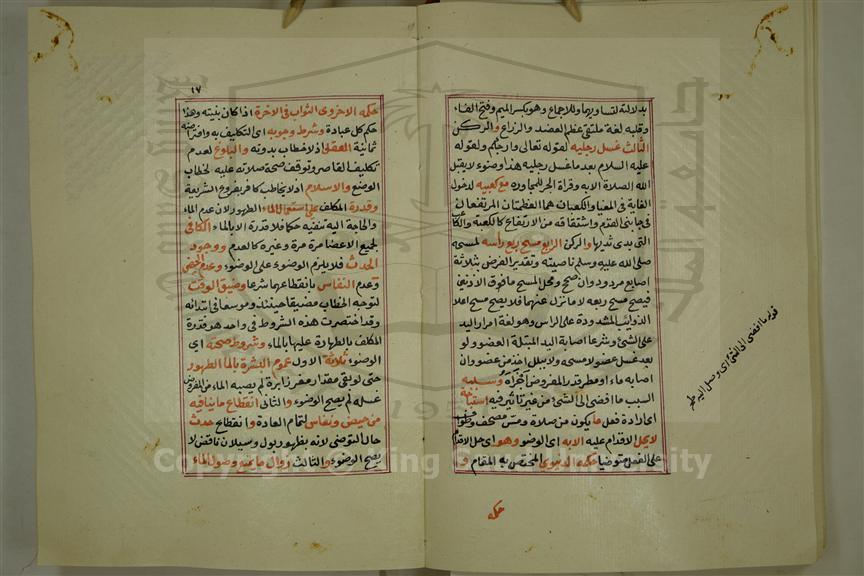 بدلالته لتساويهما وللاجماع وهو بكسر الميم وفتح الفاء
وقلبه لغة ملتقى عظم العضد والزراع والركن
الثالث غسل رجليه لقوله تعالى وارجلكم ولقوله
عليه السلام بعد ما غسل رجليه هذا وضوء لا يقبل
الله الصلاة الا به وقراة الجر للمجاورة مع كعبيه لدخول
الغاية في المغيا والكعبان هما العظمتان المرتفعتان
في جانبي القدم واشتقاقه من الارتفاع كالكعبة والكاعب
التي بدى ثديها والركن الرابع مسح ربع راسه لمسحه
صلى الله عليه وسلم ناصيته وتقدير الفرض بثلاثة
اصابع مردود وان صحح ومحل المسح ما فوق الاذنين
فيصح مسح ربعه لا ما نزل عنهما فلا يصح مسح اعلا
الذوايب المشدودة على الراس وهو لغة امرار اليد
على الشئ وشرعا اصابة اليد المبتلة العضو ولو
بعد غسل عضو لا مسحه ولا ببلل اخذ من عضو وان
اصابه ماء او مطر قدر المفروض اجزاه وسببه
السبب ما افضى الى الشئ من غير تاثير فيه استباحة
اي ارادة فعل ما يكون من صلاة ومس مصحف وطواف
لا يحل الاقدام عليه الا به اي الوضو وهو اي حل الاقدام
على الفعل متوضيا حكمه الدنيوي المختص به المقام و
حكمه
قوله ما افضى الى الشئ اي وصل اليه
١٧
حكمه الاخروي الثواب في الاخرة اذا كان بنيته وهذا
حكم كل عبادة وشرط وجوبه اي التكليف به وافتراضه
ثمانية العقل اذ لا خطاب بدونه والبلوغ لعدم
تكليف القاصر وتوقف صحة صلاته عليه لخطاب
الوضع والاسلام اذ لا يخاطب كافر بفروع الشريعة
وقدرة المكلف على استعمال الماء الطهور لان عدم الماء
والحاجة اليه تنفيه حكما فلا قدرة الا بالماء الكافي
لجميع الاعضا مرة مرة وغيره كالعدم ووجود
الحدث فلا يلزم الوضوء على الوضوء وعدم الحيض
وعدم النفاس بانقطاعهما شرعا وضيق الوقت
لتوجه الخطاب مضيقا حينئذ وموسعا في ابتدائه
وقد اختصرت هذه الشروط في واحد هو قدرة
المكلف بالطهارة عليها بالماء وشروط صحته اي
الوضوء ثلاثة الاول عموم البشرة بالماء الطهور
حتى لو بقي مقدار مغرز ابرة لم يصبه الماء من المفروض
غسله لم يصح الوضوء والثاني انقطاع ما ينافيه
من حيض ونفاس لتمام العادة وانقطاع حدث
حال التوضي لانه بظهور بول وسيلان ناقض لا
يصح الوضوء والثالث زوال ما يمنع وصول الماء
Copyright © King Saud University
جامعة الملك سعود
1957